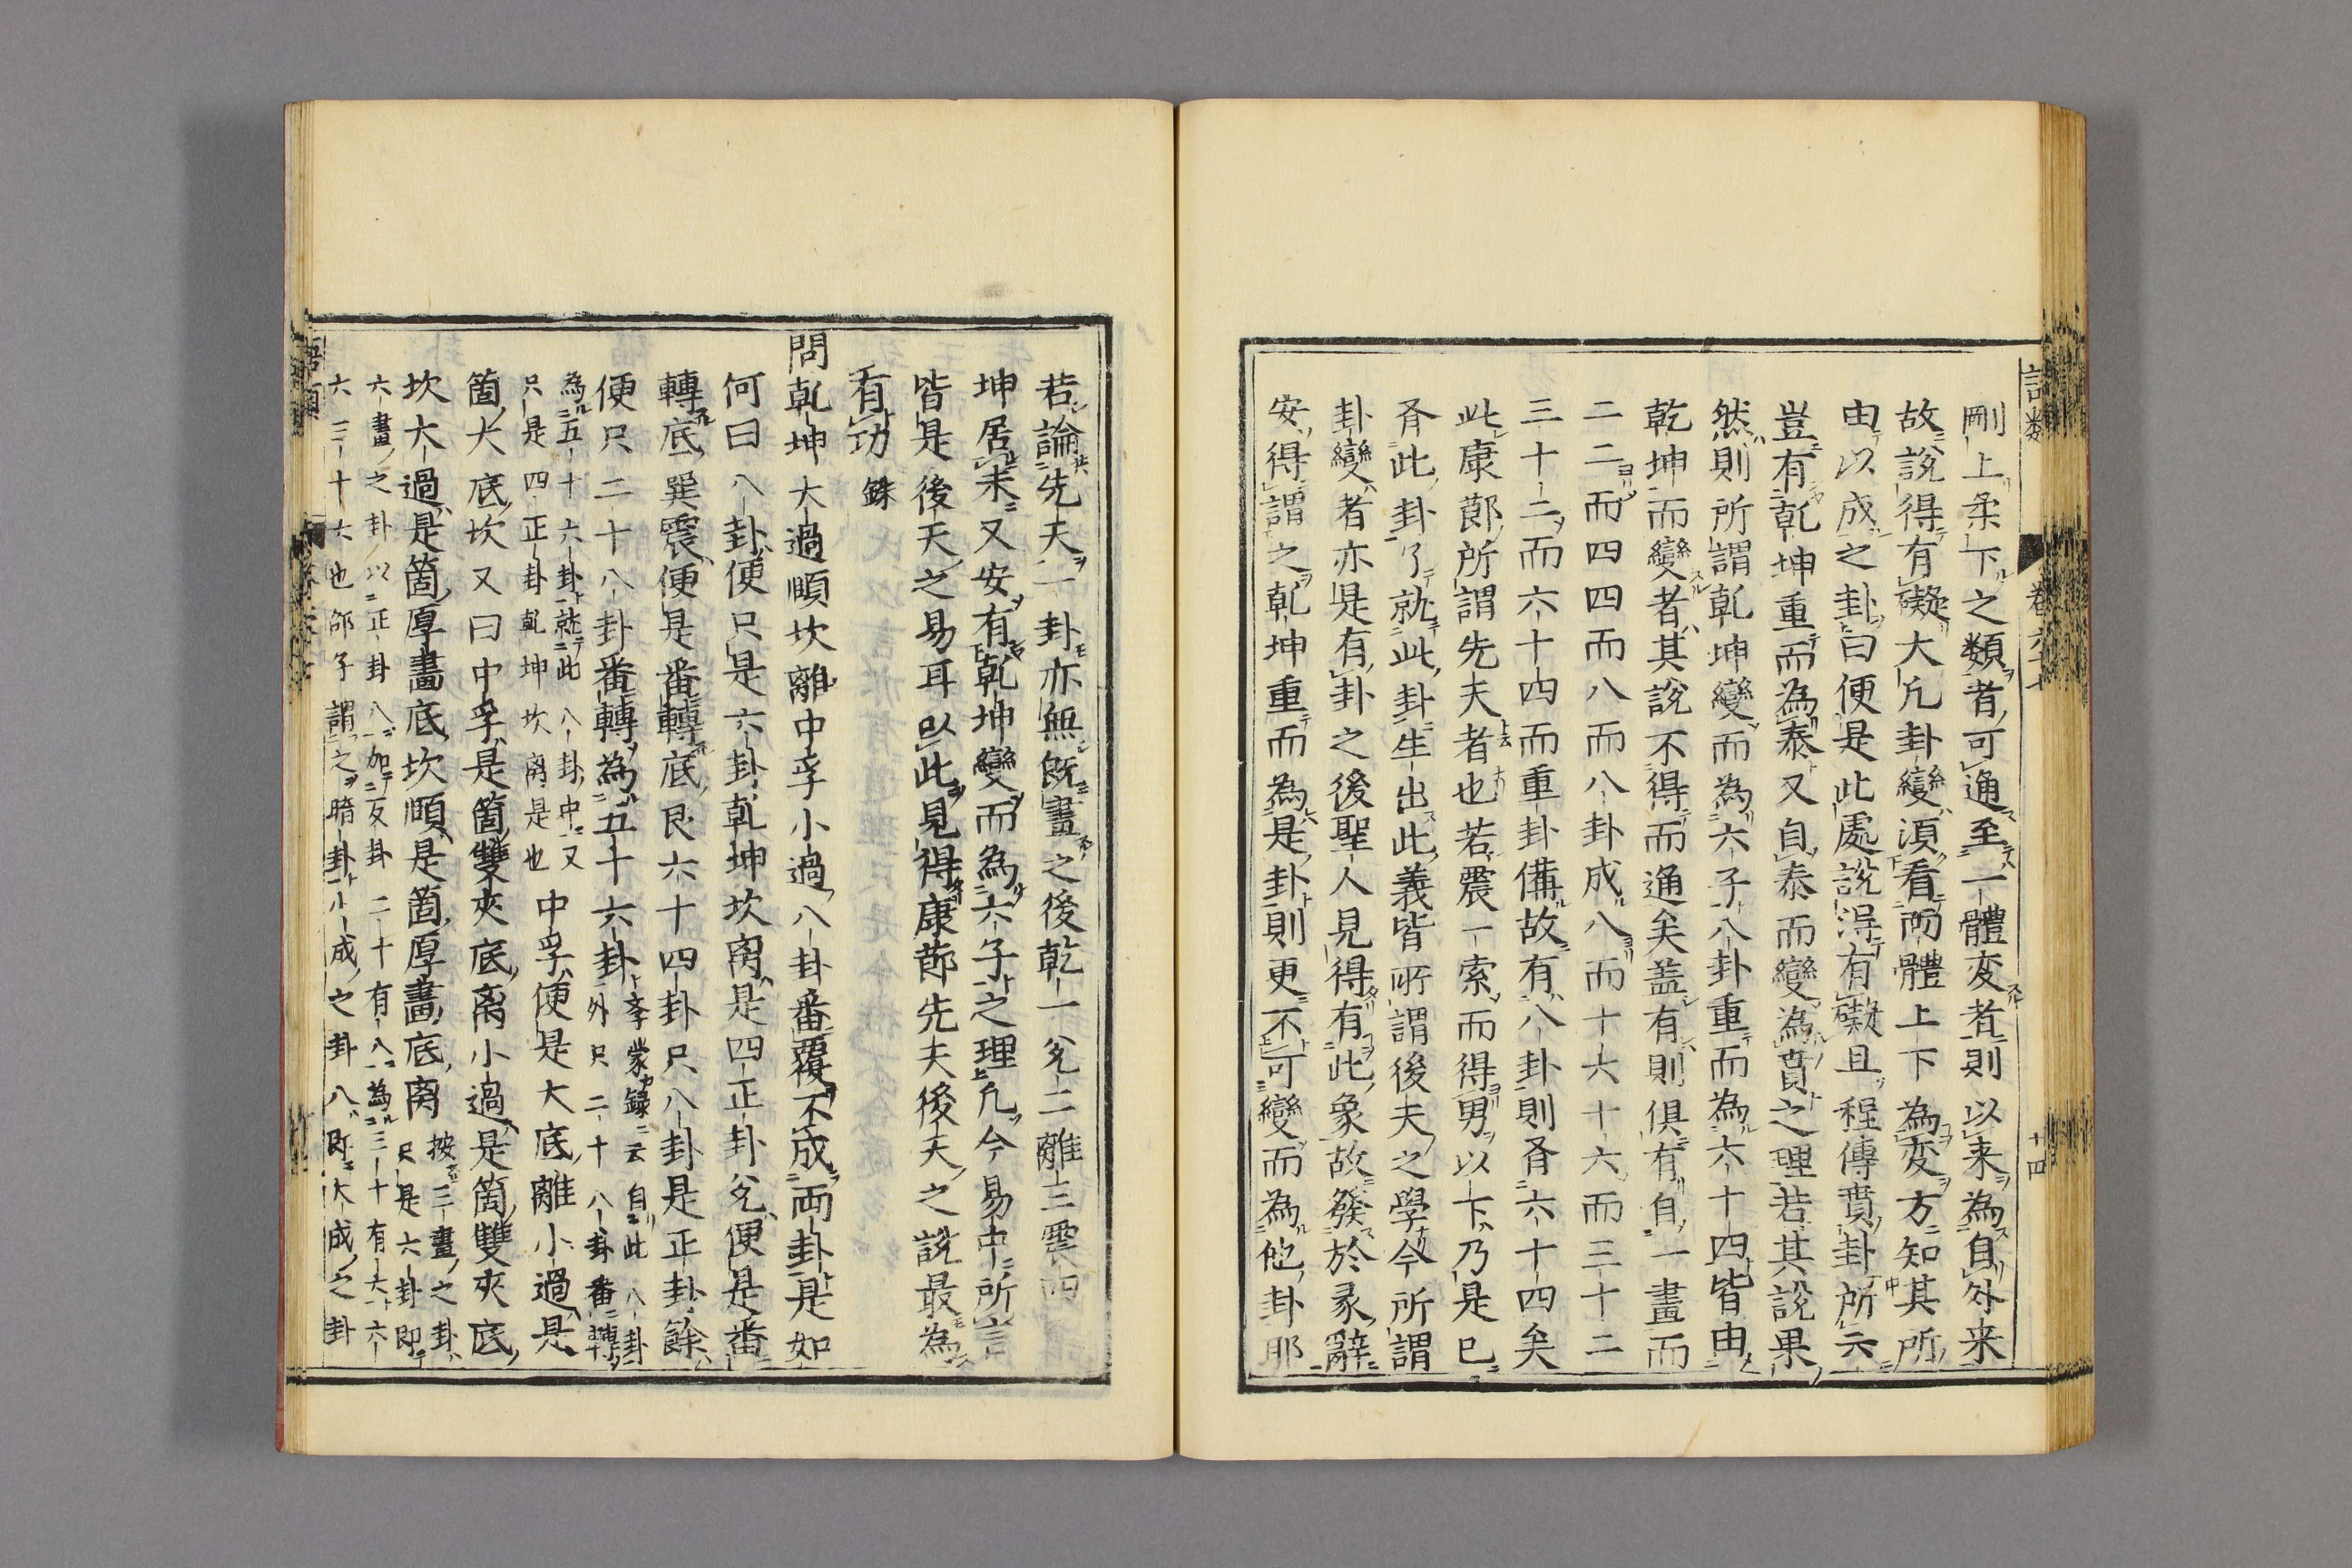 剛上柔下之類者可通至一體变者則以来為自外来
故說得有礙大凡卦變湏看兩體上下為变方知其所
由以成之卦曰便是此處說淂有礙且程傳賁卦所云
豈有乾坤重而為泰又自泰而變為賁之理若其說果
然則所謂乾坤變而為六子八卦重而為六十四皆由
乾坤而變者其說不得而通矣盖有則俱有自一畫而
二二而四四而八而八卦成八而十六十六而三十二
三十二而六十四而重卦備故有八卦則有六十四矣
此康節所謂先天者也若震一索而得男以下乃是已
有此卦了就此卦生出此義皆所謂後天之學今所謂
卦變者亦是有卦之後聖人見得有此象故發於彖辭
安得謂之乾坤重而為是卦則更不可變而為他卦耶
語類
卷六十七
十四
若論先天一卦亦無既畫之後乾一兌二離三震四
坤居末又安有乾坤變而為六子之理凡今易中所言
皆是後天之易耳以此見得康節先天後天之說最為
有功 銖
問乾坤大過頤坎離中孚小過八卦番覆不成兩卦是如
何曰八卦便只是六卦乾坤坎离是四正卦兌便是番
轉底巽震便是番轉底艮六十四卦只八卦是正卦餘
便只二十八卦番轉為五十六卦 夅蒙録云自此八卦外只二十八卦番轉
為五十六卦就此八卦中又只是四正卦乾坤坎离是也 中孚便是大底離小過是
箇大底坎又曰中孚是箇雙夾底离小過是箇雙夾底
坎大過是箇厚畫底坎頤是箇厚畫底离 按三畫之卦只是六卦即
六畫之卦以正卦八加反卦二十有八為三十有六六
六三十六也邵子謂之暗卦小成之卦八即大成之卦
語類